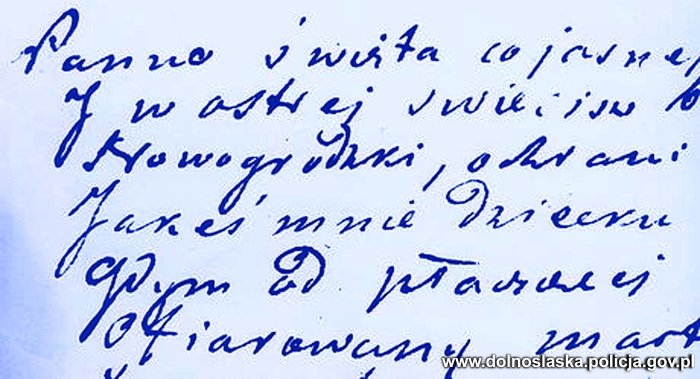 Panno święta co jasnej
I w ostrej świecisz b
Nowogródzki, ochrani
Jakeś mnie dziecku
Gdym od płaczącej
Ofiarowany mart
www.dolnoslaska.policja.gov.pl